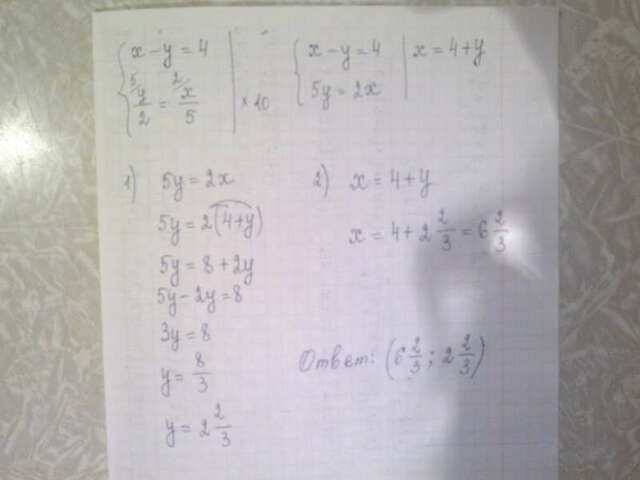 { x − y = 4
5/ y/2 = 2/ x/5 | × 10
{ x − y = 4 | x = 4 + y
5y = 2x
1) 5y = 2x
5y = 2(4+y)
5y = 8 + 2y
5y − 2y = 8
3y = 8
y = 8/3
y = 2 2/3
2) x = 4 + y
x = 4 + 2 2/3 = 6 2/3
Ответ: (6 2/3; 2 2/3)